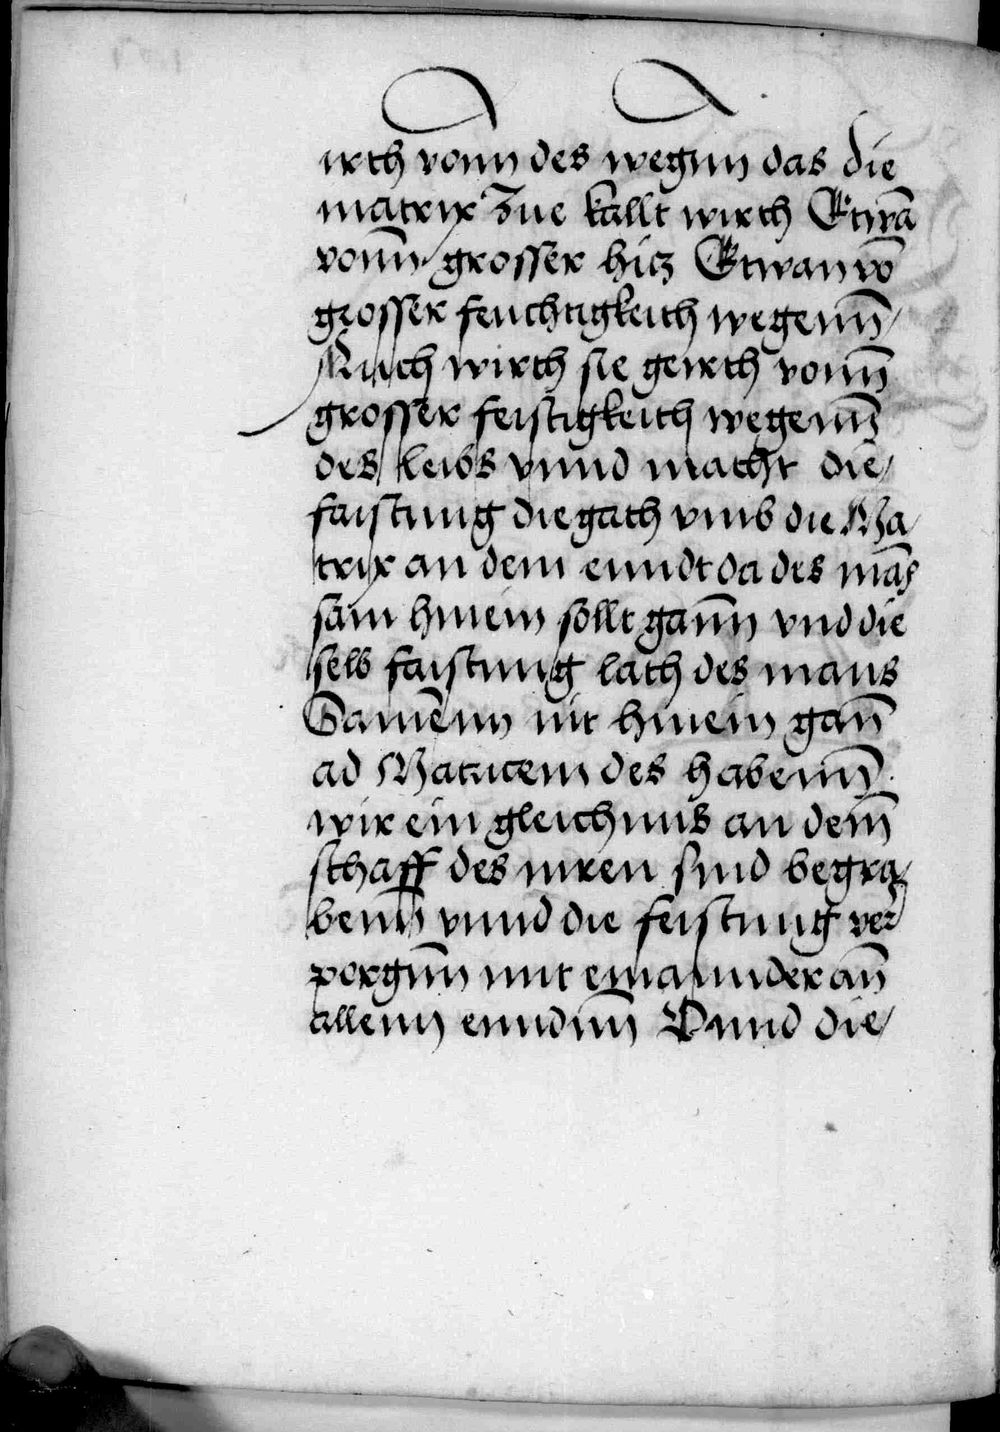 irth vonn des wegnn das die
matrix Zue kallt wirth Etwā
vonn̄ grosser hitz Etwan vō
grosser feuchtigkeith wegenn̄
Auch wirth sie geirth vonn̄
grosser feistigkeith wegenn̄
des leibs vnnd macht die
faistung die gath vmb die Ma
trix an dem enndt da des mās
sam hinein sollt gann̄ vnd die
selb faistung lath des mans
Samēnn nit hinein gan̄
ad Matricem des habenn̄
wir ein gleichnus an dem̄
schaff des niren sind begra
benn̄ vnnd die feistung ver
porgnn̄ mit einannder an̄
allenn enndnn̄ Vnnd die